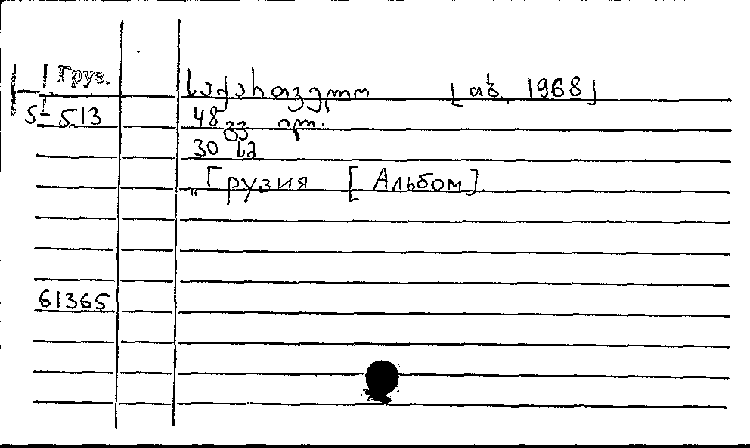 Груз. საქართველო [თბ. 1968]
5-513 48 გვ. ილ.
30 სმ
"Грузия [Альбом].
61365